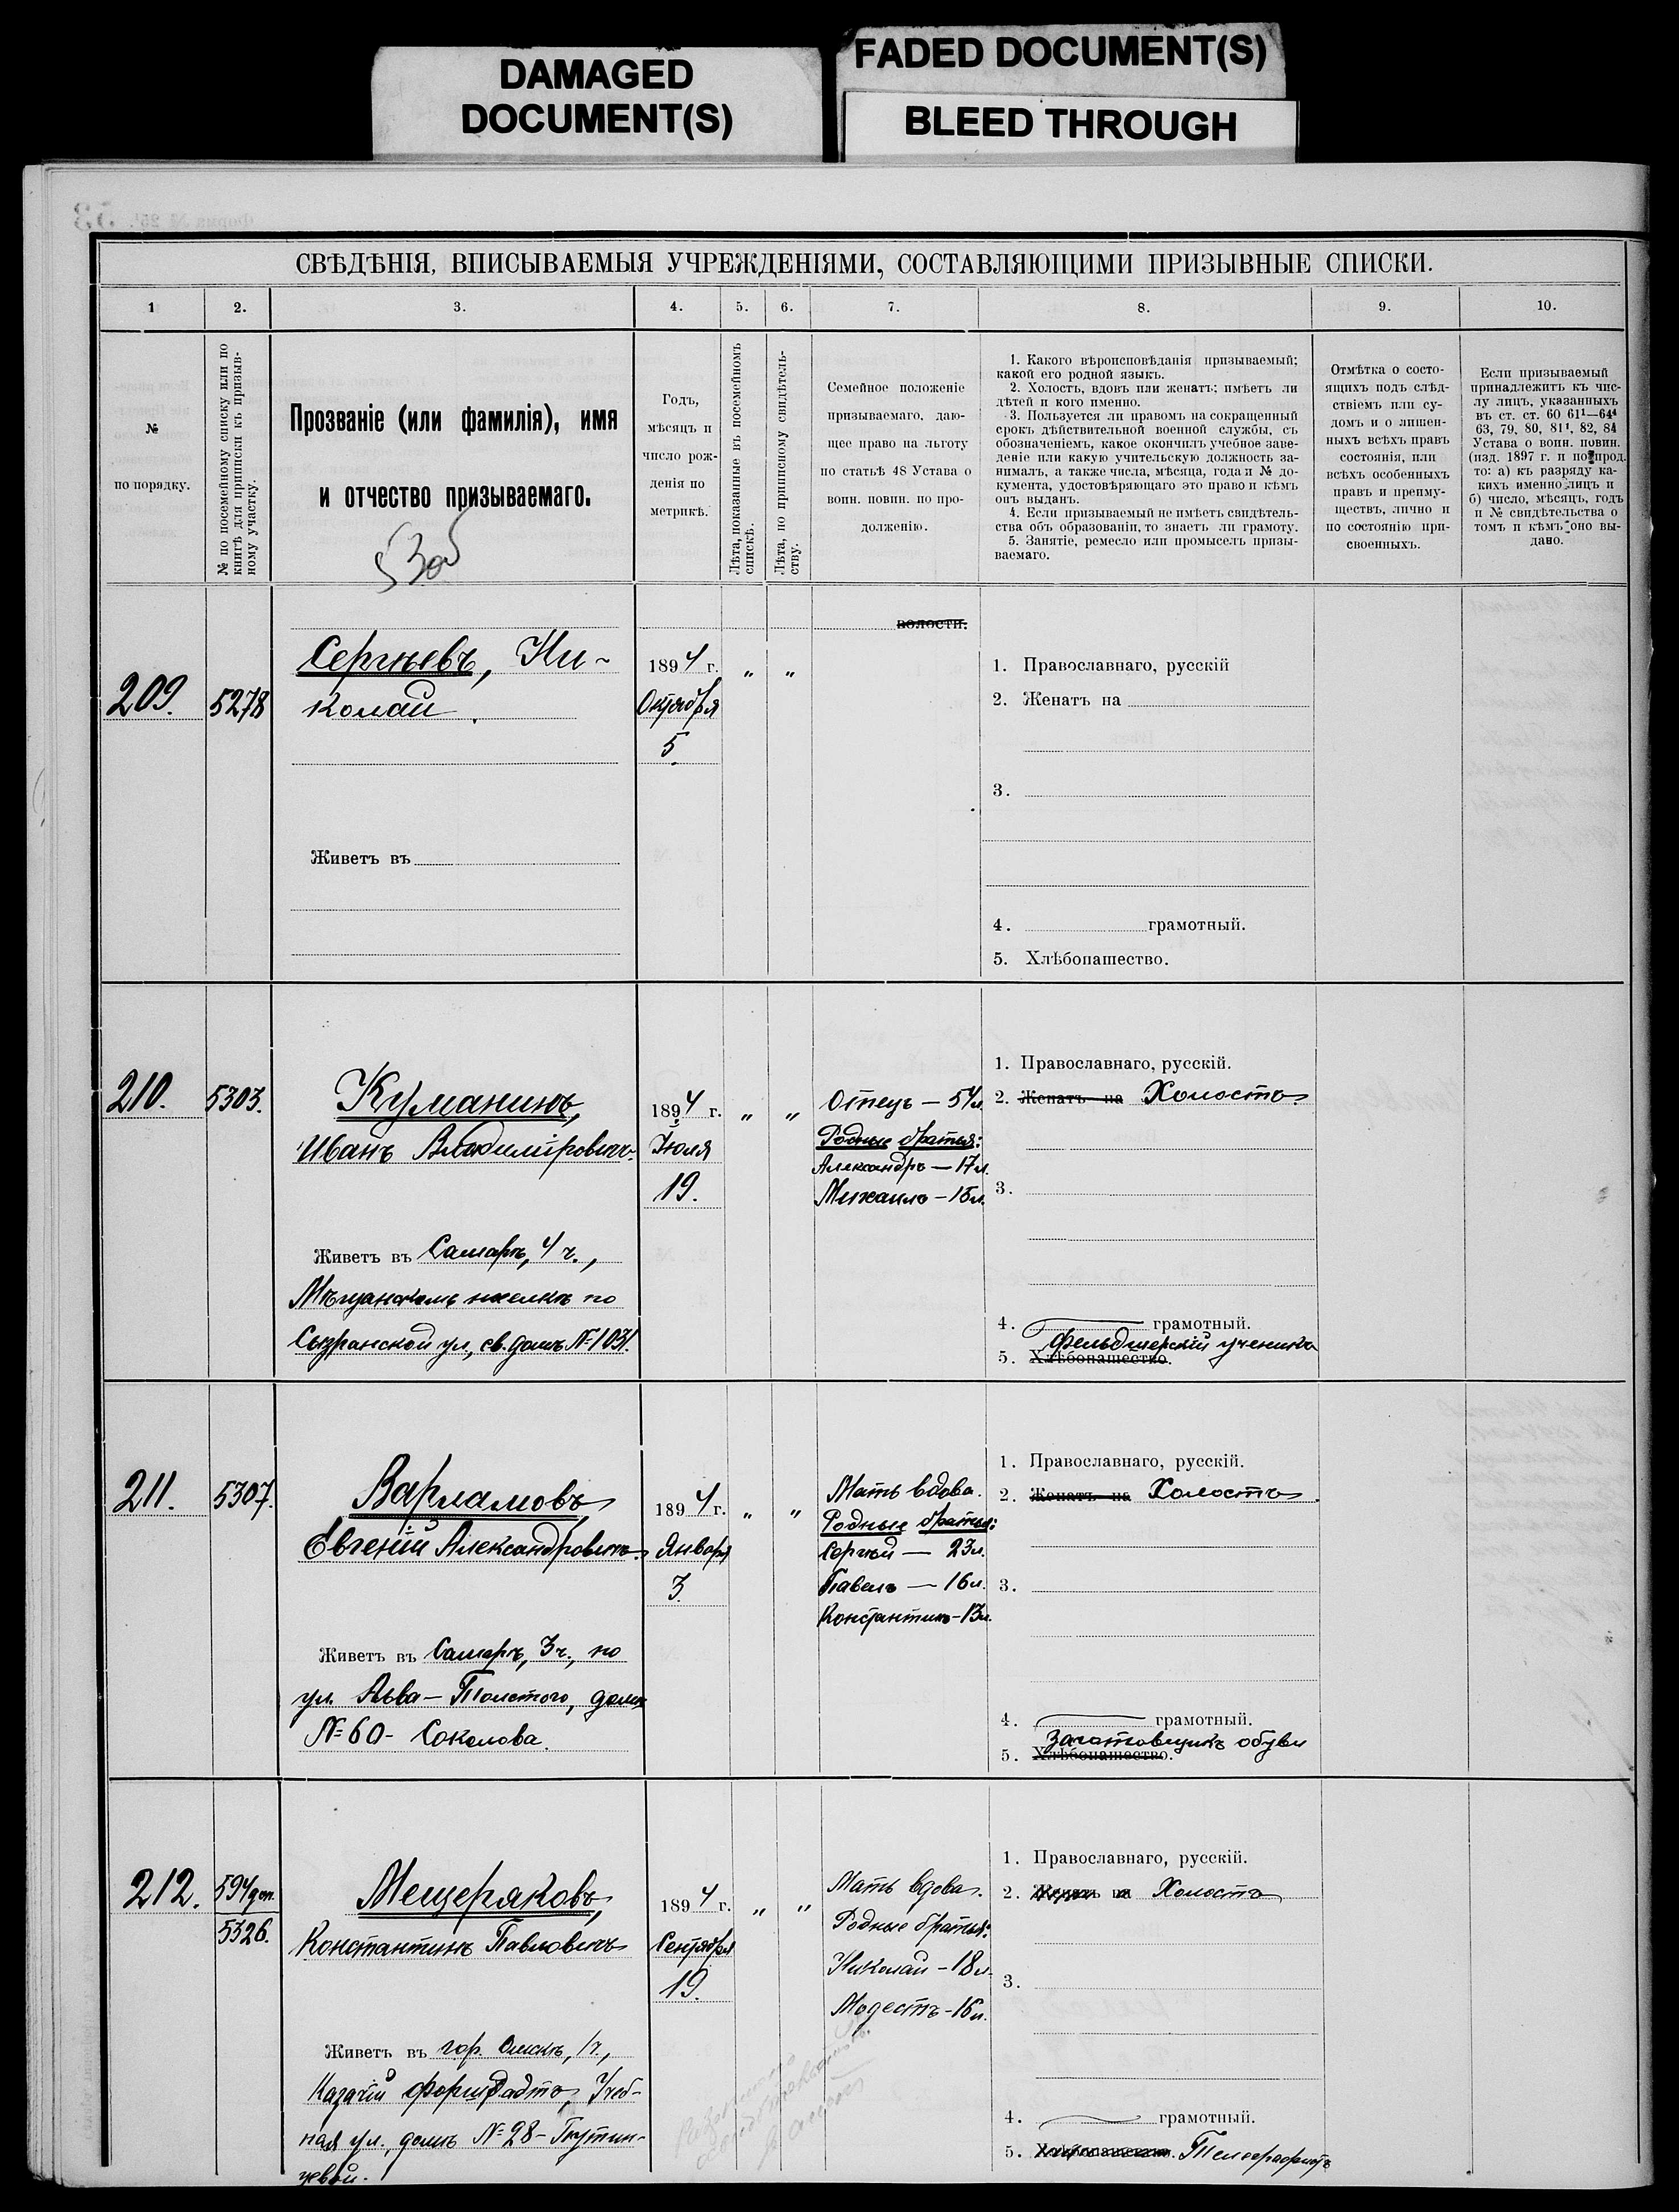 DAMAGED
DOCUMENT(S)
FADED DOCUMENT(S)
BLEED THROUGH
СВѢДѢНІЯ, ВПИСЫВАЕМЫЯ УЧРЕЖДЕНІЯМИ, СОСТАВЛЯЮЩИМИ ПРИЗЫВНЫЕ СПИСКИ.
1 2. 3. 4. 5. 6. 7. 8. 9. 10.
№
по порядку.
№ по посемейному списку или по
книгѣ для приписки къ призыв-
ному участку.
Прозваніе (или фамилія), имя
и отчество призываемаго.
53об
Годъ,
мѣсяцъ и
число рож-
денія по
метрикѣ.
Лѣта, показанные въ посемейномъ
спискѣ.
Лѣта, по приписному свидѣтель-
ству.
Семейное положеніе
призываемаго, даю-
щее право на льготу
по статьѣ 48 Устава о
воин. повин. по про-
долженію.
1. Какого вѣроисповѣданія призываемый;
какой его родной языкъ.
2. Холостъ, вдовъ или женатъ; имѣетъ ли
дѣтей и кого именно.
3. Пользуется ли правомъ на сокращенный
срокъ дѣйствительной военной службы, съ
обозначеніемъ, какое окончилъ учебное заве-
деніе или какую учительскую должность за-
нималъ, а также числа, мѣсяца, года и № до-
кумента, удостовѣряющаго это право и кѣмъ
онъ выданъ.
4. Если призываемый не имѣетъ свидѣтель-
ства объ образованіи, то знаетъ ли грамоту.
5. Занятіе, ремесло или промыселъ призы-
ваемаго.
Отмѣтка о состо-
ящихъ подъ слѣд-
ствіемъ или су-
домъ и о лишен-
ныхъ всѣхъ правъ
состоянія, или
всѣхъ особенныхъ
правъ и преиму-
ществъ, лично и
по состоянію при-
своенныхъ.
Если призываемый
принадлежитъ къ чис-
лу лицъ, указанныхъ
въ ст. ст. 60 61¹—64⁴
63, 79, 80, 81¹, 82, 84
Устава о воин. повин.
(изд. 1897 г. и по прод.
то: а) къ разряду ка-
кихъ именно лицъ и
б) число, мѣсяцъ, годъ
и № свидѣтельства о
томъ и кѣмъ оно вы-
дано.
волости.
209. 5278
Сергѣевъ, Ни-
колай.
1894 г. " "
Октября
5.
Живетъ въ
1. Православнаго, русскій
2. Женатъ на
3.
4. грамотный.
5. Хлѣбопашество.
210. 5303.
Куманинъ,
Иванъ Владиміровичъ.
1894 г. " "
Іюля
19.
Живетъ въ Самарѣ, 4 ч.,
Мѣщанскомъ поселкѣ по
Сызранской ул., св. домъ № 1031.
Отецъ — 54 л.
Родные братья:
Александръ — 17 л.
Михаилъ — 15 л.
1. Православнаго, русскій.
2. Женатъ на Холостъ
3.
4. грамотный.
Фельдшерскій ученикъ
5. Хлѣбопашество.
211. 5307.
Варламовъ
Евгеній Александровичъ.
1894 г. " "
Января
3.
Живетъ въ Самарѣ, 3 ч., по
ул. Льва-Толстого, домъ
№ 60 - Соколова.
Мать вдова.
Родные братья:
Сергѣй — 23 л.
Павелъ — 16 л.
Константинъ - 13 л.
1. Православнаго, русскій.
2. Женатъ на Холостъ.
3.
4. грамотный.
Заготовщикъ обуви
5. Хлѣбопашество.
212. 594 доп.
5326.
Мещеряковъ,
Константинъ Павловичъ
1894 г. " "
Сентября
19.
Живетъ въ гор. Омскѣ, 1 ч.,
Казачій форштадтъ, Учеб-
ная ул., домъ № 28 -
Мать вдова.
Родные братья:
Николай - 18 л.
Модестъ - 16 л.
1. Православнаго, русскій.
2. Женатъ на Холостъ
3.
4. грамотный.
5. Хлѣбопашество. Телеграфистъ